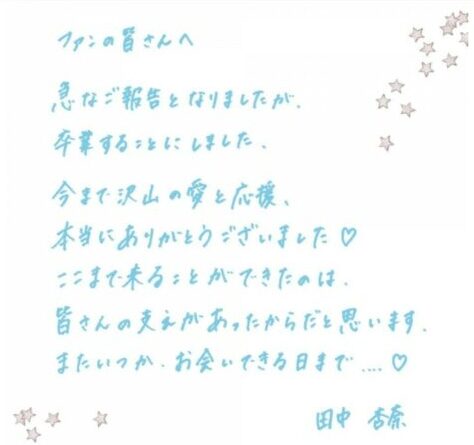 ファンの皆さんへ
急なご報告となりましたが、
卒業することにしました、
今まで沢山の愛と応援、
本当にありがとうございました♡
ここまで来ることができたのは、
皆さんの支えがあったからだと思います、
またいつか、お会いできる日まで....♡
田中 杏奈